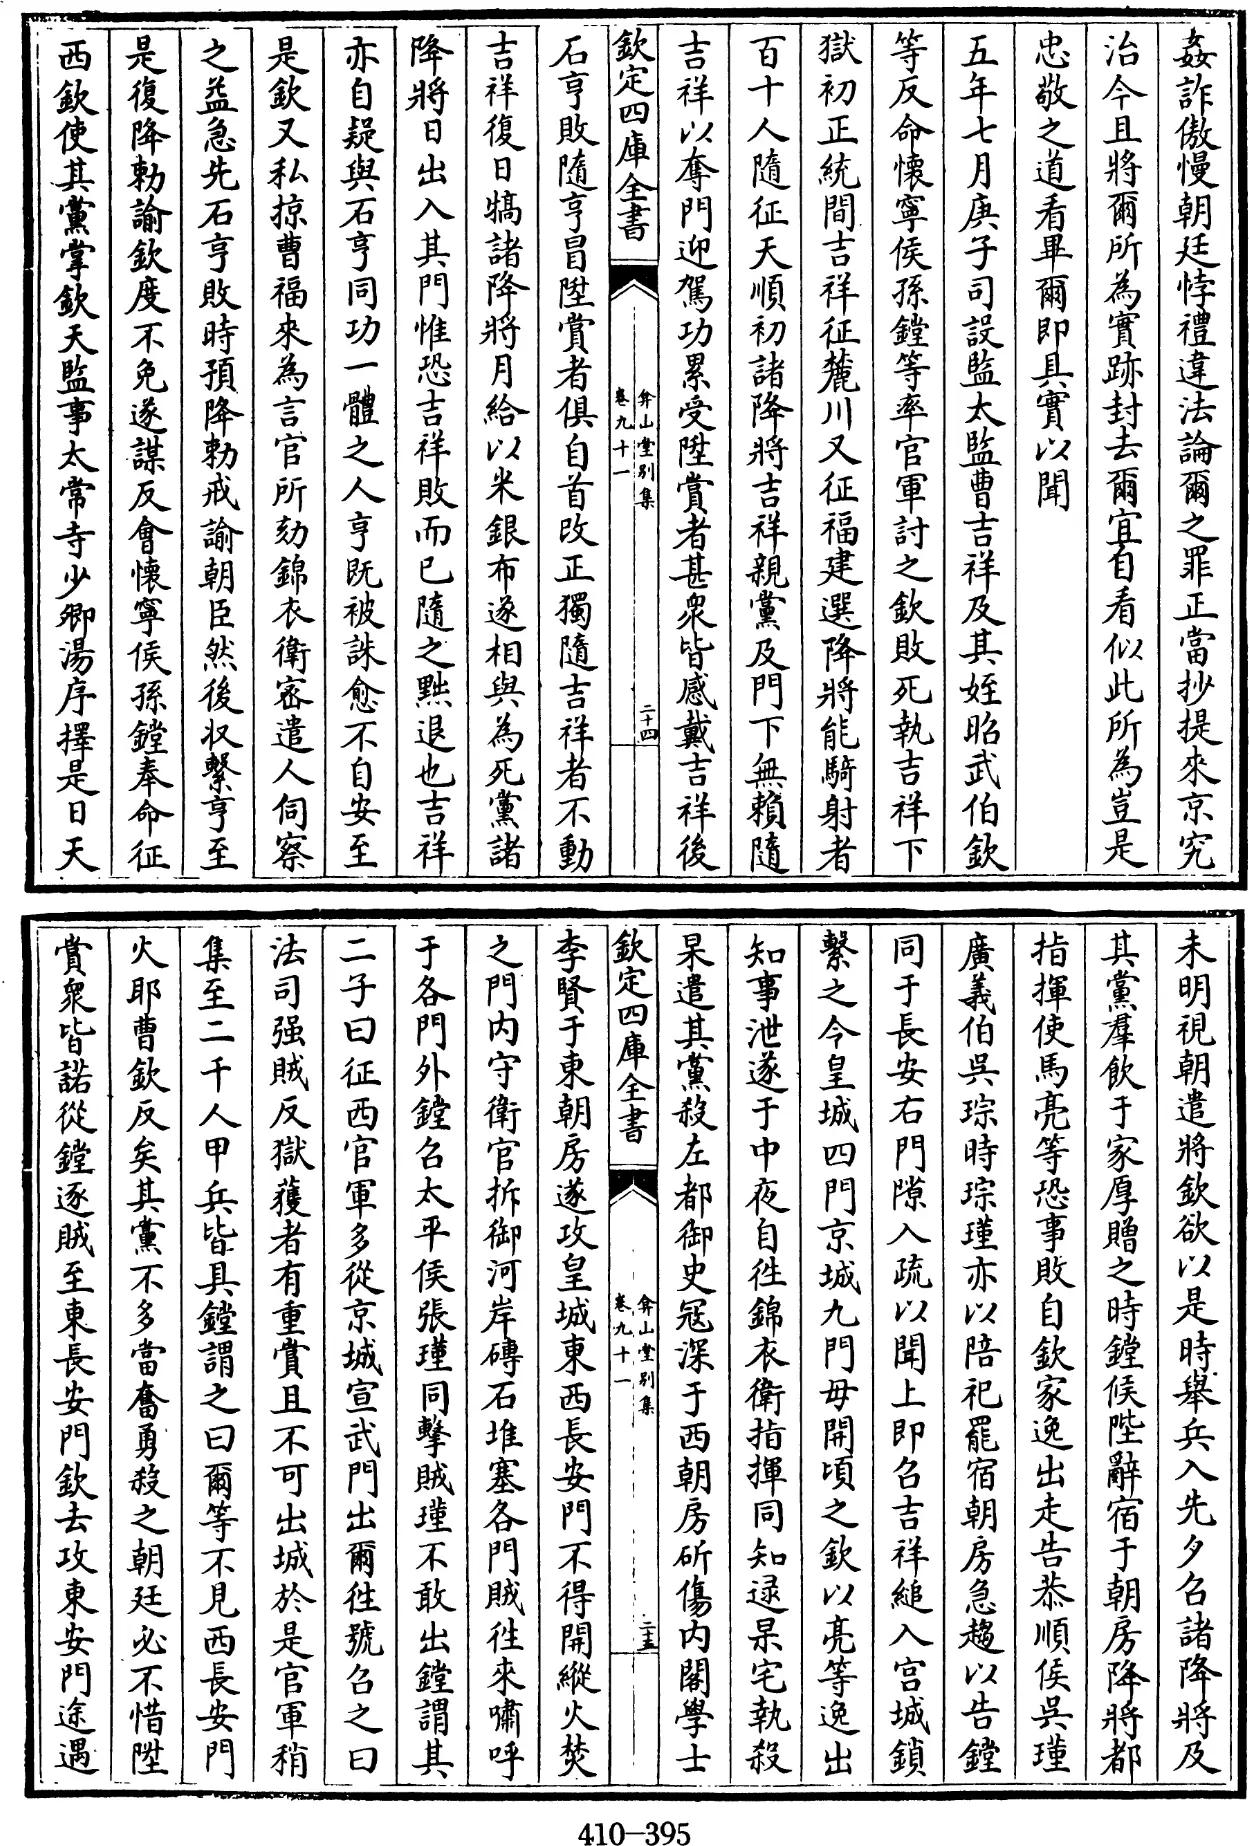 姦詐傲慢朝廷悖禮違法論爾之罪正當抄提來京究
治今且將爾所為實跡封去爾宜自看似此所為豈是
忠敬之道看畢爾即具實以聞
五年七月庚子司設監太監曹吉祥及其姪昭武伯欽
等反命懷寧侯孫鏜等率官軍討之欽敗死執吉祥下
獄初正統間吉祥征麓川又征福建選降將能騎射者
百十人隨征天順初諸降將吉祥親黨及門下無賴隨
吉祥以奪門迎駕功累受陞賞者甚衆皆感戴吉祥後
欽定四庫全書
弇山堂別集
卷九十一
二十四
石亨敗隨亨冒陞賞者俱自首改正獨隨吉祥者不動
吉祥復日犒諸降將月給以米銀布遂相與為死黨諸
降將日出入其門惟恐吉祥敗而已隨之黜退也吉祥
亦自疑與石亨同功一體之人亨既被誅愈不自安至
是欽又私掠曹福來為言官所劾錦衣衛密遣人伺察
之益急先石亨敗時預降勅戒諭朝臣然後収繫亨至
是復降勅諭欽度不免遂謀反會懷寧侯孫鏜奉命征
西欽使其黨掌欽天監事太常寺少卿湯序擇是日天
未明視朝遣將欽欲以是時舉兵入先夕召諸降將及
其黨羣飲于家厚贈之時鏜候陛辭宿于朝房降將都
指揮使馬亮等恐事敗自欽家逸出走告恭順侯吳瑾
廣義伯吳琮時琮瑾亦以陪祀罷宿朝房急趨以告鏜
同于長安右門隙入疏以聞上即召吉祥縋入宫城鎖
繫之令皇城四門京城九門毋開頃之欽以亮等逸出
知事泄遂于中夜自徃錦衣衛指揮同知逯杲宅執殺
杲遣其黨殺左都御史冦深于西朝房斫傷内閣學士
欽定四庫全書
弇山堂別集
卷九十一
二十五
李賢于東朝房遂攻皇城東西長安門不得開縱火焚
之門内守衛官拆御河岸磚石堆塞各門賊徃來嘯呼
于各門外鏜召太平侯張瑾同擊賊瑾不敢出鏜謂其
二子曰征西官軍多從京城宣武門出爾徃號召之曰
法司强賊反獄獲者有重賞且不可出城於是官軍稍
集至二千人甲兵皆具鏜謂之曰爾等不見西長安門
火耶曹欽反矣其黨不多當奮勇殺之朝廷必不惜陞
賞衆皆諾從鏜逐賊至東長安門欽去攻東安門途遇
410-395